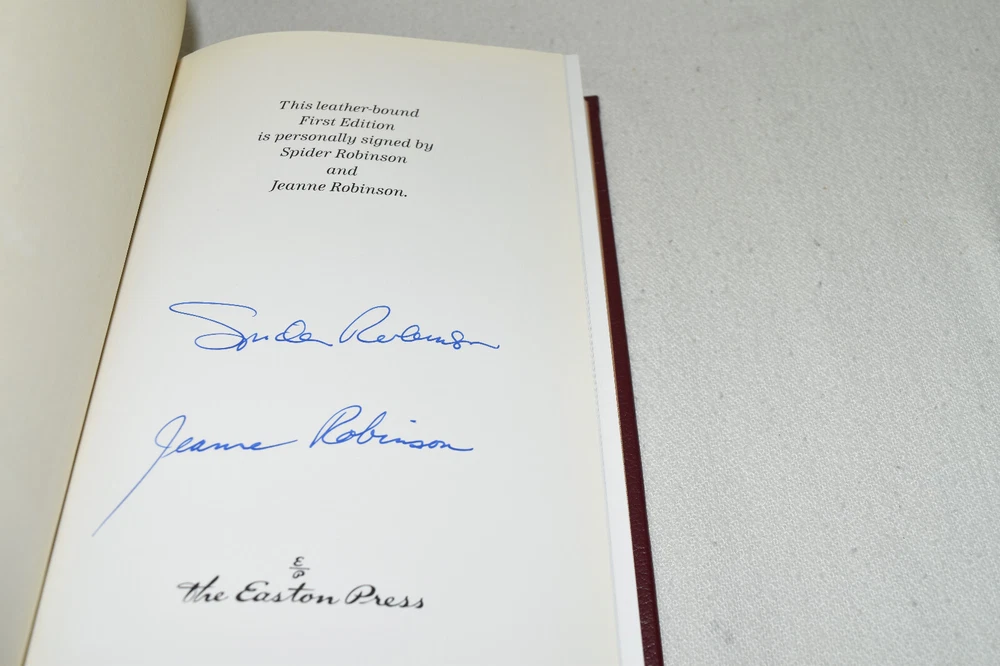 This leather-bound
First Edition
is personally signed by
Spider Robinson
and
Jeanne Robinson.
Spider Robinson
Jeanne Robinson
E
P
the Easton Press